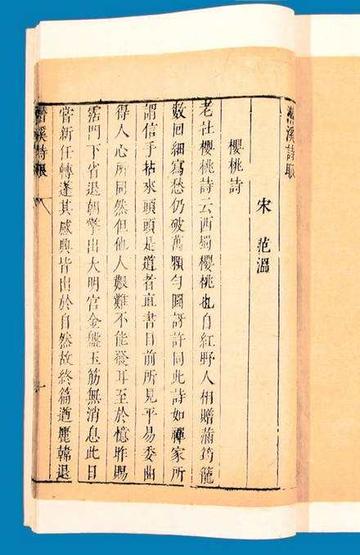 潛溪詩眼
宋 范溫
櫻桃詩
老杜櫻桃詩云西蜀櫻桃也自紅野人相贈滿筠籠
數回細寫愁仍破萬顆勻圓訝許同此詩如禪家所
謂信手拈來頭頭是道者直書目前所見平易委曲
得人心所同然但他人艱難不能發耳至於憶昨賜
霑門下省退朝擎出大明宮金盤玉筋無消息此日
嘗新任轉蓬其感興皆出於自然故終篇遒麗韓退
潛溪詩眼